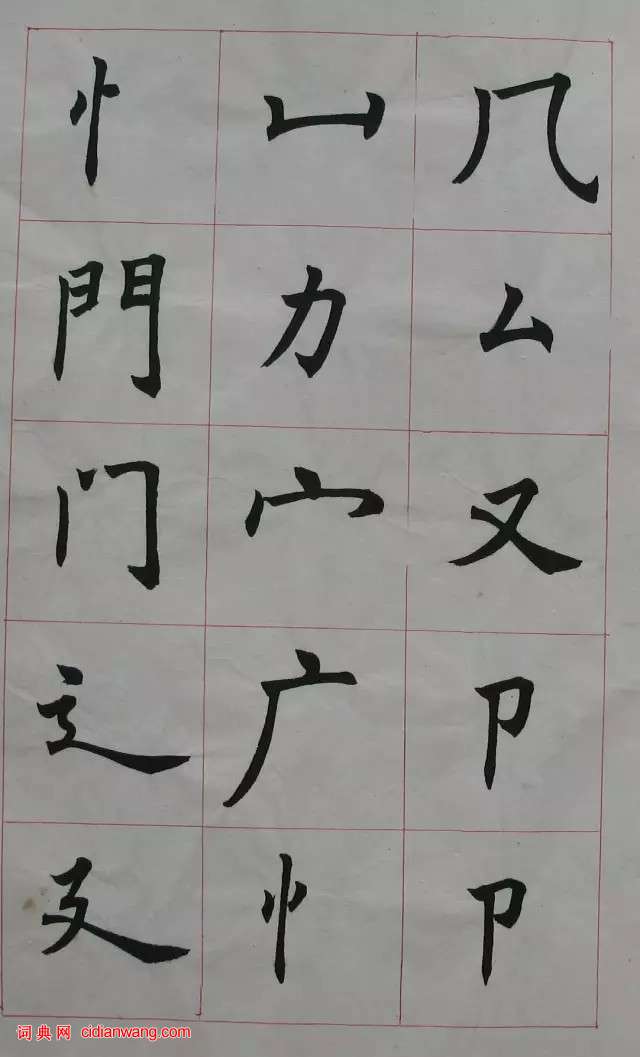 几厶又卩卩
凵力宀广忄
忄門门辶廴
词典网 cidianwang.com